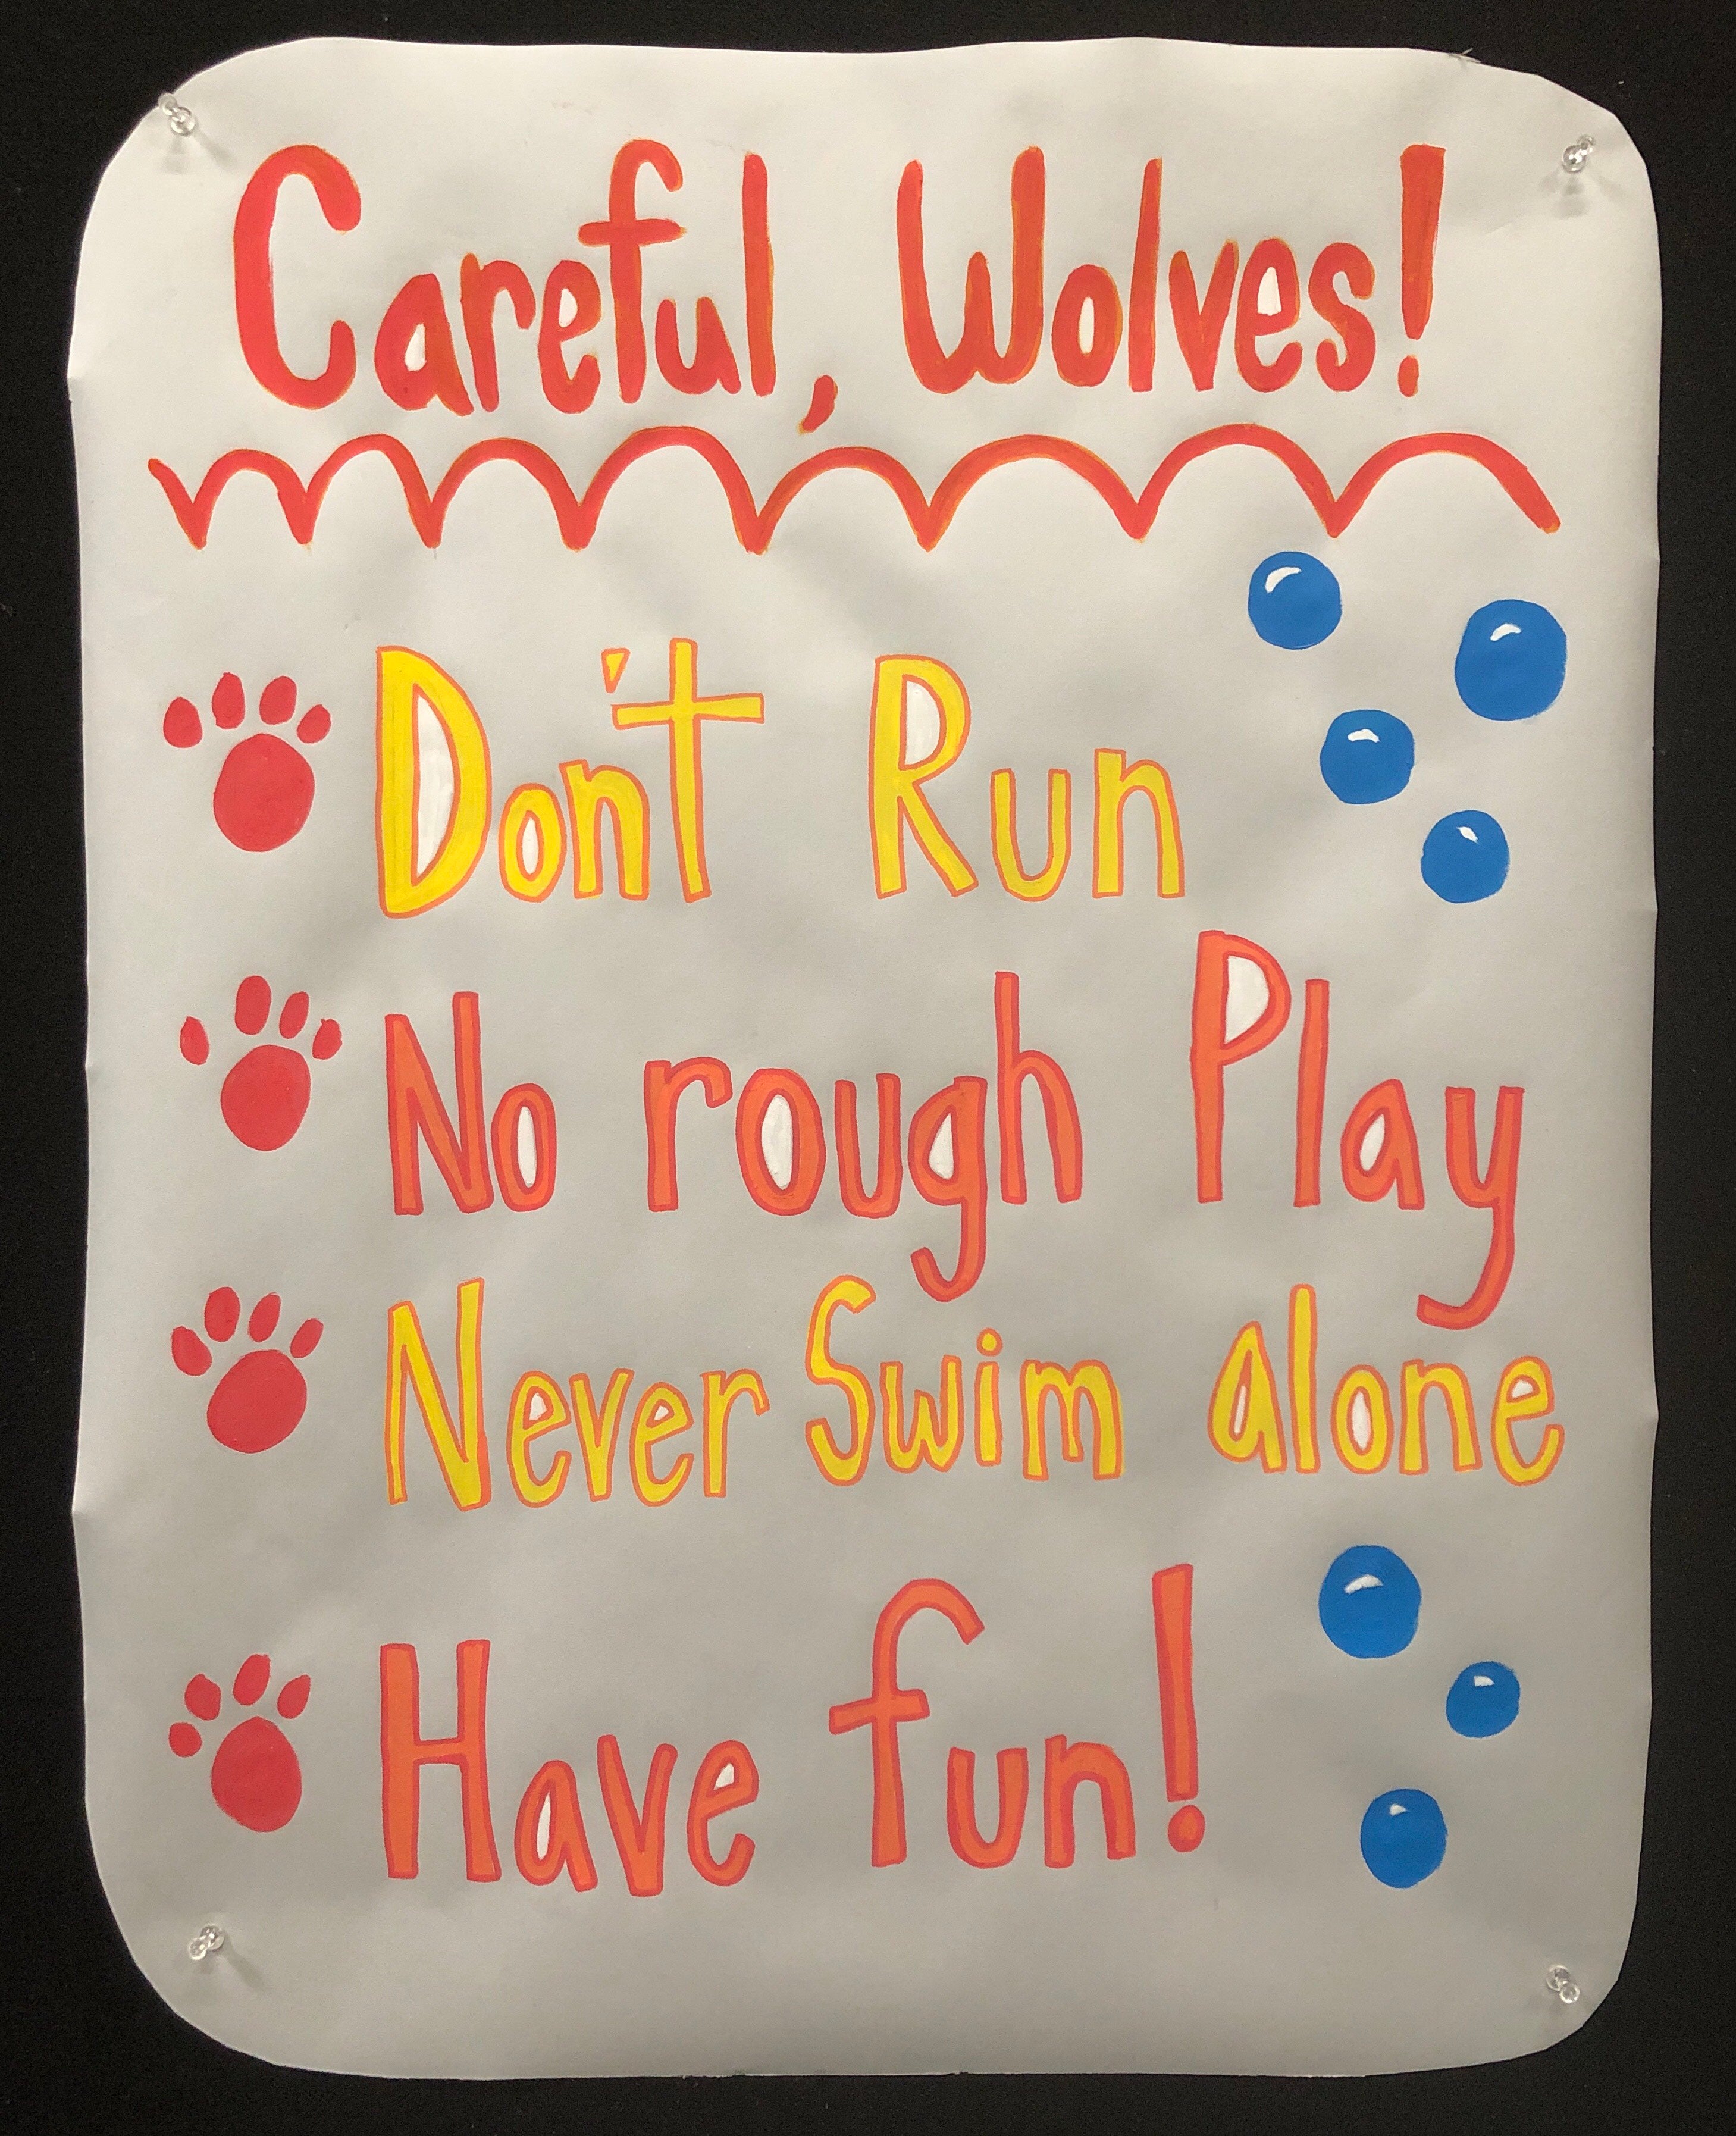 Careful, Wolves!
Don't Run
No rough Play
Never Swim alone
Have fun!